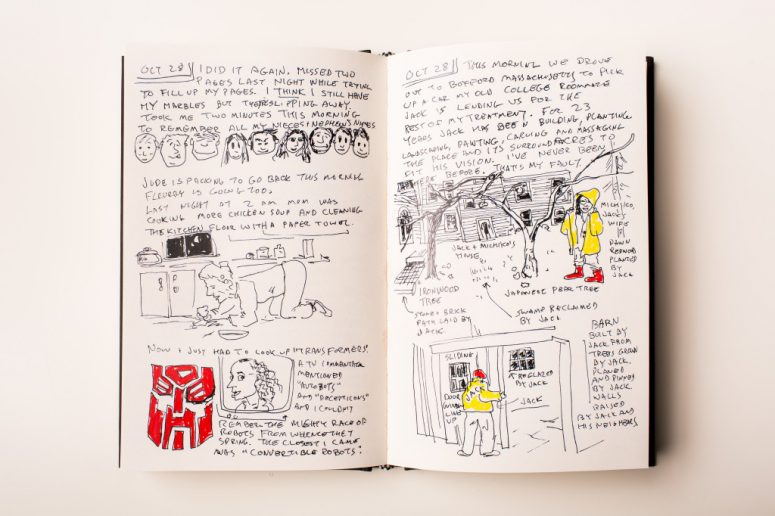 OCT 28 I DID IT AGAIN. MISSED TWO
PAGES LAST NIGHT WHILE TRYING
TO FILL UP MY PAGES. I THINK I STILL HAVE
MY MARBLES BUT SLIPPING AWAY.
TOOK ME TWO MINUTES THIS MORNING
TO REMEMBER ALL MY NIECES + NEPHEWS NAMES
JUDE IS PACKING TO GO BACK THIS MORNING
IS GOING TOO.
LAST NIGHT AT 2 AM MOM WAS
COOKING MORE CHICKEN SOUP AND CLEANING
THE KITCHEN FLOOR WITH A PAPER TOWEL.
NOW I JUST HAD TO LOOK UP "TRANSFORMERS".
A TV
MENTIONED
"AUTOBOTS"
AND "DECEPTICONS"
AND I COULDN'T
REMEMBER THE MIGHTY RACE OF
ROBOTS FROM WHENCE THEY
SPRING. THE CLOSEST I CAME
WAS "CONVERTIBLE ROBOTS".
OCT 28 THIS MORNING WE DROVE
OUT TO MASSACHUSETTS TO PICK
UP A CAR MY OLD COLLEGE ROOMMATE
JACK IS LENDING US FOR THE
REST OF MY TREATMENT. FOR 23
YEARS JACK HAS BEEN BUILDING, PLANTING
LANDSCAPING, PAINTING, CARVING AND MASSAGING
THE PLACE AND ITS SURROUND ACRES TO
FIT HIS VISION. I'VE NEVER BEEN
HERE BEFORE. THAT'S MY FAULT.
JACK + MICHIKO'S
HOUSE
MICHIKO,
JACK'S
WIFE
DAWN
REDWOOD
PLANTED
BY JACK
IRONWOOD
TREE
JAPANESE PEAR TREE
STONE + BRICK
PATH LAID BY
JACK
SWAMP RECLAIMED
BY JACK
BARN
BUILT BY
JACK FROM
TREES GROWN
BY JACK.
PLANED
AND PINNED
BY JACK
WALLS
RAISED
BY JACK AND
HIS NEIGHBORS
SLIDING
DOOR
UP
GLAZED
BY JACK
JACK
JACK